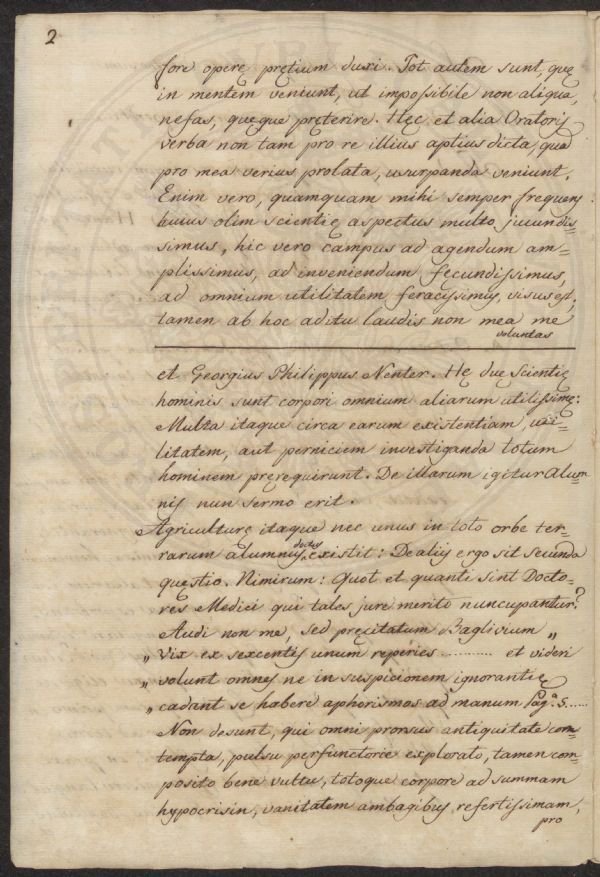 2
fore operę prętium duxi. Tot autem sunt, quę
in mentem veniunt, ut impossibile non aliqua,
nefas, quęque pręterire. Hęc et alia Oratoris
verba non tam pro re illius aptius dicta, quā
pro mea verius prolata, usurpanda veniunt.
Enim vero, quamquam mihi semper frequens
huius olim scientię aspectus multo jucundis=
simus, hic vero campus ad agendum am=
plissimus, ad inveniendum fecundissimus,
ad omnium utilitatem feracissimus, visus est;
tamen ab hoc aditu laudis non mea me
voluntas
et Georgius Philippus Nenter. Hę duę Scientię
hominis sunt corpori omnium aliarum utilissimę:
Multa itaque circa earum existentiam, uti=
litatem, aut perniciem investiganda totum
hominem pręrequirunt. De illarum igitur alum
nis nun sermo erit.
Agriculturę itaque nec unus in toto orbe ter=
rarum alumnus doctus existit: De aliis ergo sit secunda
quęstio. Nimirum: Quot et quanti sint Docto=
res Medici qui tales jure merito nuncupantur?
Audi non me, sed pręcitatum Baglivium „
„ vix ex sexcentis unum reperies ........... et videri
„ volunt omnes ne in suspicionem ignorantię
„ cadant se habere aphorismos ad manum Pag.ª 5......
Non desunt, qui omni prorsus antiquitate con=
tempta, pulsu perfunctorie explorato, tamen com=
posito bene vultu, totoque corpore ad summam
hypocrisin, vanitatem ambagibus refertissimam,
pro